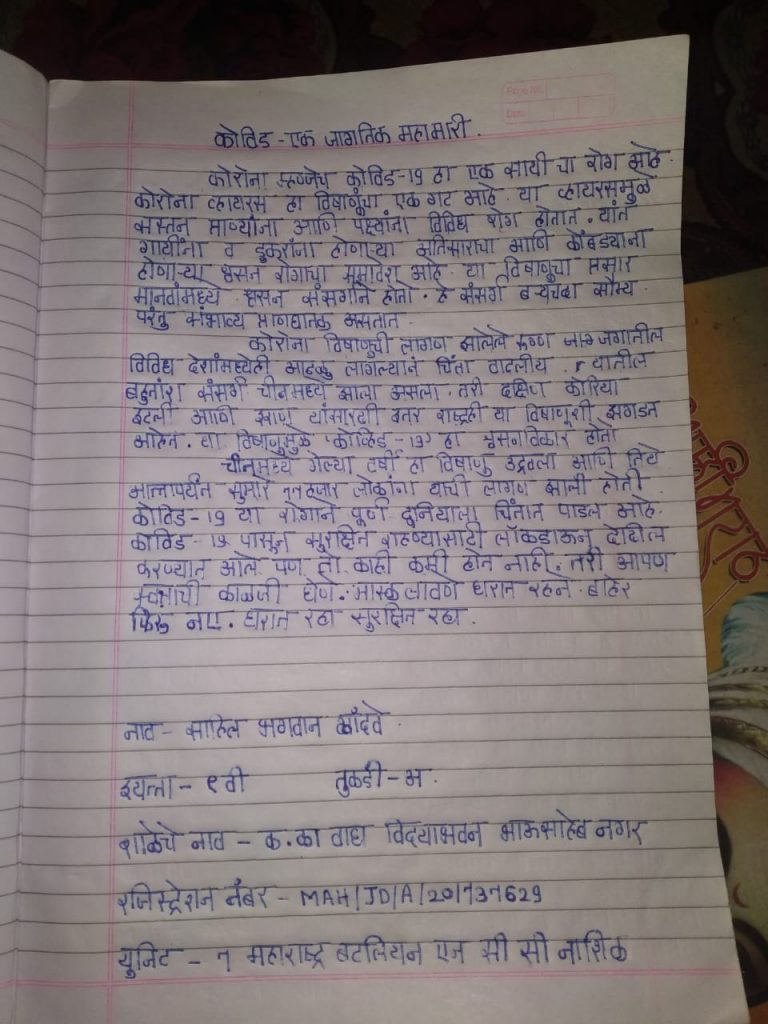 Page No.
Date
कोविड - एक जागतिक महामारी.
कोरोना म्हणजेच कोविड-19 हा एक साथी चा रोग आहे.
कोरोना व्हायरस हा विषाणूंचा एक गट आहे. या व्हायरसमुळे
सस्तन प्राण्यांना आणि पक्ष्यांना विविध रोग होतात. यांत
गायींना व डुकरांना होणाऱ्या अतिसाराचा आणि कोंबड्यांना
होणाऱ्या श्वसन रोगाचा समावेश आहे. या विषाणूचा प्रसार
मानवांमध्ये श्वसन संसर्गाने होतो. हे संसर्ग बऱ्याचदा सौम्य
परंतु संभाव्य प्राणघातक असतात.
कोरोना विषाणूची लागण झालेले रुग्ण जगातील
विविध देशांमध्येही आढळू लागल्याने चिंता वाटलीय. त्यातील
बहुतांश संसर्ग चीनमध्ये झाला असला तरी दक्षिण कोरिया
इटली आणि इराण यांसारखी इतर राष्ट्रही या विषाणूशी झगडत
आहेत. या विषाणूमुळे 'कोव्हिड-19' हा श्वसनविकार होतो
चीनमध्ये गेल्या वर्षी हा विषाणु उद्भवला आणि तिथे
आत्तापर्यंत सुमारे ११ हजार लोकांना याची लागण झाली होती.
कोविड-19 या रोगाने पूर्ण दुनियाला चिंतात पाडल आहे.
कोविड-19 पासून सुरक्षित राहण्यासाठी लॉकडाऊन देखिल
करण्यात आले पण तो काही कमी होत नाही. तरी आपण
स्वताची काळजी घेणे. मास्क लावणे घरात रहने. बाहेर
फिरू नए. घरात रहा सुरक्षित रहा.
नाव - साहिल भगवान
इयत्ता - ९ वी तुकडी - अ.
शाळेचे नाव - क.का वाघ विद्याभवन भाऊसाहेब नगर
रजिस्ट्रेशन नंबर - MAH/JD/A/20/737629
युनिट - १ महाराष्ट्र बटालियन एन सी सी नाशिक